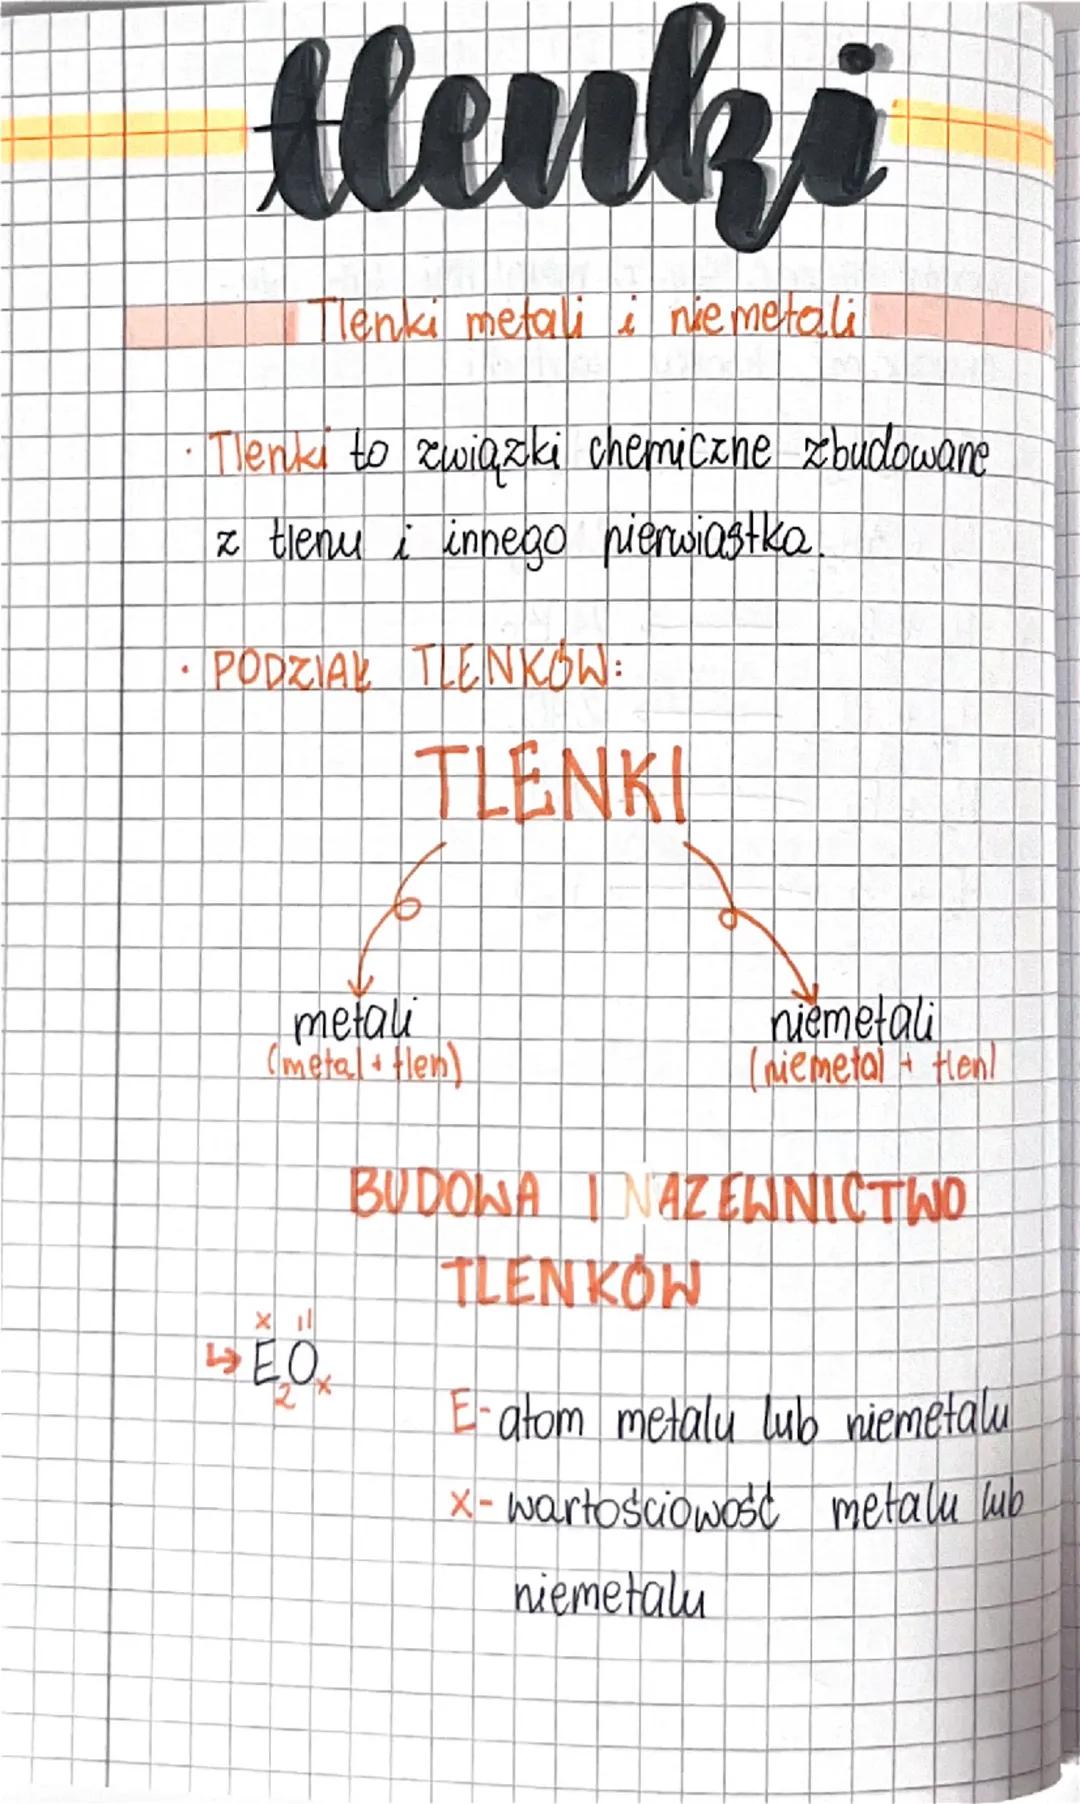 tlenki
Tlenki metali i niemetali
· Tlenki to związki chemiczne zbudowane
z tlenu i innego pierwiastka.
· PODZIAŁ TLENKÓW:
TLENKI
metali niemetali
(metal + tlen) (niemetal + tlen)
BUDOWA I NAZEWNICTWO
TLENKÓW
x II
↳ E₂Oₓ
E- atom metalu lub niemetalu
x- wartościowość metalu lub
niemetalu